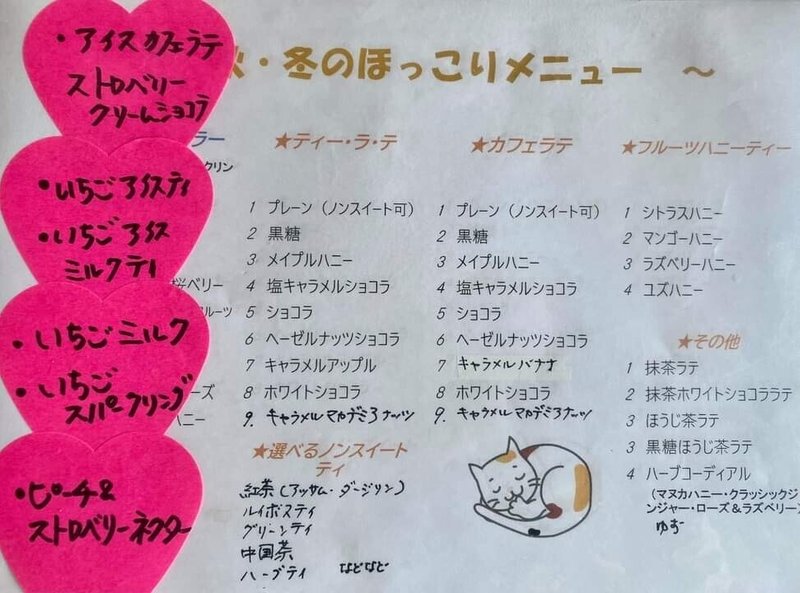 ・アイスカフェラテ
ストロベリー
クリームショコラ
・いちごアイスティ
・いちごアイス
ミルクティ
・いちごミルク
・いちご
スパークリング
・ピーチ&
ストロベリーネクター
・冬のほっこりメニュー ～
ラー
クリン
ベリー
ルーツ
ーズ
ハニー
★ティー・ラ・テ
1 プレーン（ノンスイート可）
2 黒糖
3 メイプルハニー
4 塩キャラメルショコラ
5 ショコラ
6 ヘーゼルナッツショコラ
7 キャラメルアップル
8 ホワイトショコラ
9. キャラメルマカデミアナッツ
★選べるノンスイート
ティ
紅茶（アッサム・ダージリン）
ルイボスティ
グリーンティ
中国茶
ハーブティ などなど
★カフェラテ
1 プレーン（ノンスイート可）
2 黒糖
3 メイプルハニー
4 塩キャラメルショコラ
5 ショコラ
6 ヘーゼルナッツショコラ
7 キャラメルバナナ
8 ホワイトショコラ
9. キャラメルマカデミアナッツ
★フルーツハニーティー
1 シトラスハニー
2 マンゴーハニー
3 ラズベリーハニー
4 ユズハニー
★その他
1 抹茶ラテ
2 抹茶ホワイトショコララテ
3 ほうじ茶ラテ
3 黒糖ほうじ茶ラテ
4 ハーブコーディアル
（マヌカハニー・クラッシックジ
ンジャー・ローズ＆ラズベリー）
ゆず